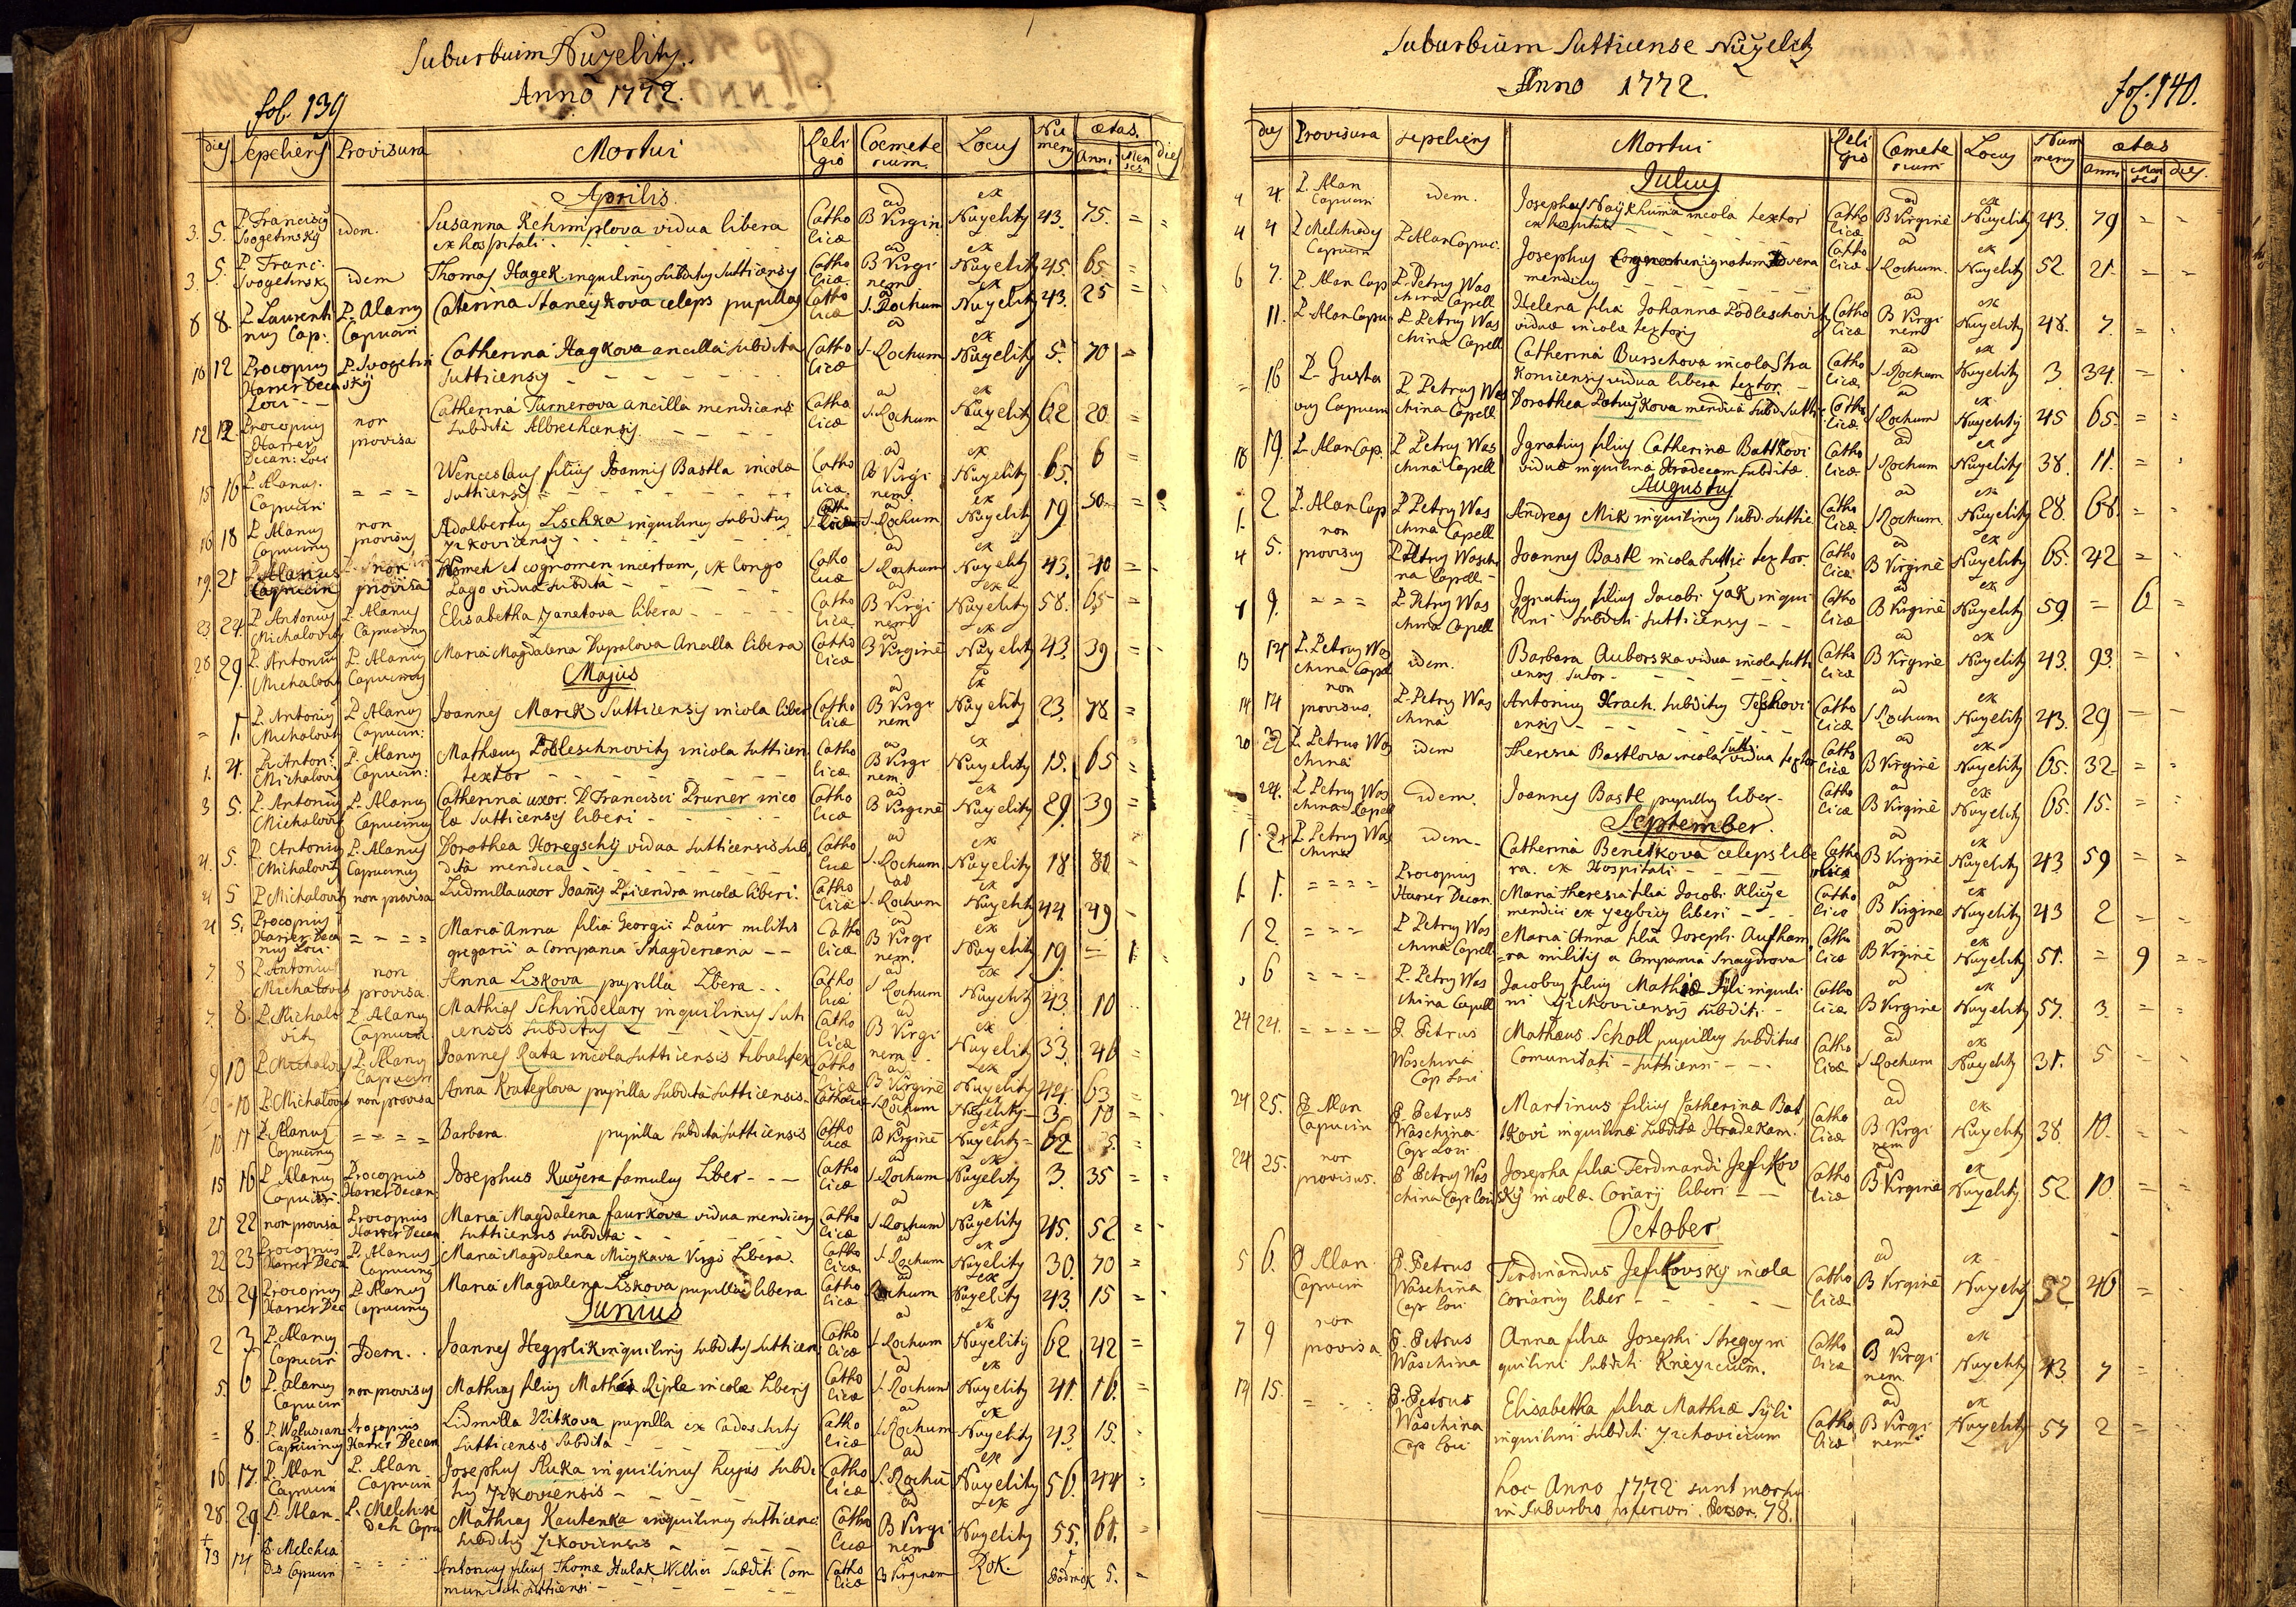 Suburbium Nuzelity.
Anno 1772.
fol. 139
dies Sepeliens Provisura Mortui Religio Coemeterium. Locus Numerus ætas. Anni Menses dies
Aprilis.
3. 5. P Franciscy Svogetinsky idem. Susanna Rehimplova vidua libera ex hospitali - Catho licæ ad B Virgin ex Nuzelity 43. 75. = =
3. 5. P Franc: Svogetinsky idem Thomas Hagek inquilinus subditus Sutticensis Catho licæ ad B Virginem ex Nuzelity 45. 65. =
8 8. P Laurentinus Cap: P. Alanus Capucin Caterina Staneykova celeps pupilla Catho licæ ad S. Rochum ex Nuzelity 43. 25 =
10 12 Procopius Harrer Decan Loci P. Svogetinsky Catherina Hagkova ancilla subdita Sutticensis - - - Catho licæ ad S. Rochum ex Nuzelity 5. 70 =
12 12 Procopius Harrer Decan: Loci non provisa Catherina Turnerova ancilla mendicans subdita Albrechensis - - Catho licæ ad S. Rochum ex Nuzelity 62 20. =
15 16 P. Alanus Capucin = = = Wenceslaus filius Joannis Bastla incola Sutticensis - - - Catho licæ ad B Virginem ex Nuzelity 65. 6 =
16 18 P Alanus Capucinus non provisus Adalbertus Lischka inquilinus subditus Zikovicensis Catho licæ S. Rochum ex Nuzelity 19 50 =
19. 21 P. Alanus Capucin non provisa Nomen et cognomen incertum, ex longo Lago vidua subdita - - Catho licæ ad S Rochum ex Nuzelity 43. 40 =
23 24. P. Antonius Michalovitz P. Alanus Capucinus Elisabetha Zanetova libera - - Catho licæ ad B Virginem ex Nuzelity 58. 65 =
28 29. P. Antonius Michalovitz P. Alanus Capucinus Maria Magdalena Kupalova Ancilla libera Catho licæ ad B Virginē ex Nuzelity 43. 39 =
Majus
= 1. P. Antonius Michalovitz P. Alanus Capucin: Joannes Marek Sutticensis incola liber Catho licæ ad B Virginem ex Nuzelity 23. 78 =
1. 4. P. Anton: Michalovitz P. Alanus Capucin: Mathæus Podleschnovitz incola Sutticen textor - - - Catho licæ ad B Virginem ex Nuzelity 15. 65 =
3 5. P. Antonius Michalovitz P. Alanus Capucinus Catherina uxor P Francisci Pruner incolæ Sutticensis liberi - - Catho licæ ad B Virginē ex Nuzelity 29. 39 =
4. 5. P Antonius Michalovitz P. Alanus Capucinus Dorothea Horegschy vidua Sutticensis subdita mendica - - - Catho licæ ad S. Rochum ex Nuzelity 18 80
4 5 P Michalovitz non provisa Ludmilla uxor Joanis Pricendra incolæ liberi. Catho licæ ad S. Rochum ex Nuzelity 44 49 -
4 5. Procopius Harrer Decanus Loci = = = = Maria Anna filia Georgii Paur militis gregarii a Compania Magderiana - - Catho licæ ad B Virginem. ex Nuzelity 19. = 1.
7. 8 P. Antonius Michalovitz non provisa. Anna Liskova pupilla Libera - - Catho licæ ad S Rochum ex Nuzelity 43. 10
7. 8. P. Michalovitz P. Alanus Capucin Mathias Schindelarz inquilinus Sutticensis subditus - - Catho licæ ad B Virginem - ex Nuzelity 33. 46 =
9 10 P. Michalovitz P. Alanus Capucin Joannes Rata incola Sutticensis tibialifex Catho licæ ad B Virginē ex Nuzelity 44. 63 =
10 P. Michalovitz non provisa Anna Krateglova pupilla subdita Sutticensis. Catholicæ ad S Rochum ex Nuzelity 3. 10 =
10 11 P. Alanus Capucinus = = = = Barbara pupilla subdita Sutticensis Catho licæ ad B Virginē ex Nuzelity = 62 5. =
15 16 P Alanus Capucin. Procopius Harrer Decan: Josephus Kuczera famulus Liber - - - Catho licæ ad S. Rochum ex Nuzelity 3. 35 =
21 22 non provisa Procopius Harrer Decan. Maria Magdalena Faurkova vidua mendicans Sutticensis subdita - - Catho licæ ad S. Rochum ex Nuzelity 45. 52 =
22 23 Procopius Harrer Deca P. Alanus Capucinus Maria Magdalena Miczkava Virgo Libera. Catho licæ. ad S. Rochum ex Nuzelity 30. 70 =
28. 29 Procopius Harrer Dec P. Alanus Capucinus Maria Magdalena Liskova pupilla libera Catho licæ ad Rochum ex Nuzelity 43. 15 =
Junius
2 3 P. Alanus Capucin Idem. . Joannes Hegplik inquilinus subditus Sutticen Catho licæ ad S. Rochum ex Nuzelity 62 42 =
5. 6 P. Alanus Capucin non provisus Mathias filius Mathæi Riple incolæ Liberis Catho licæ ad S. Rochum ex Nuzelity 41. 16. =
= 8. P. Capucinus Procopius Harrer Decan Lidmilla Vitkova pupilla ex Cadaschitz Sutticensis subdita - - Catho licæ ad S Rochum ex Nuzelity 43. 15.
16. 17. P. Alan Capucin P. Alan Capucin Josephus Ruka inquilinus hujus subditus Zikoviensis - - - Catho licæ ad S. Rochū ex Nuzelity 56. 44 =
28. 29. P. Alan - P. Melchisedeh Capu Mathias Kautenka inquilinus Sutticensi subditus Zikoviensis - - Catho licæ ad B Virginem ex Nuzelity 55. 61. =
13 14 P. Melchiades Capucin = = = Antonius filius Thomæ Hulak Willici Subditi Communitati Sutticensi - - Catho licæ ad B Virginem Rok. 5. =
Suburbium Sutticense Nuzelity
Anno 1772.
fol. 140.
dies Provisura sepeliens Mortui Religio Cœmeterium Locus Numerus ætas anni Menses dies.
Julius
4 4. P. Alan Capucin idem. Josephus Naykhuma incola textor ex hospitali - - Catho licæ ad B Virginē ex Nuzelity 43. 79 = =
4 4 P Melchiades Capucin P Alan Capuc. Josephus Cognomen ignotum mendicus - - Catho licæ ad S Rochum. ex Nuzelity 52 21. = =
6 7. P. Alan Cap P. Petrus Waschina Capell Helena filia Johannæ Podleschovitz viduæ incolæ textoris Catho licæ ad B Virginem ex Nuzelity 48. 7. =
11. P. Alan Capu P. Petrus Waschina Capell Catherina Burschova incola Strakonicensis vidua libera textor - Catho licæ ad S. Rochum ex Nuzelity 3. 34. =
= 16 P. Gustavus Capucin P. Petrus Waschina Capell Dorothea Patuzkova mendica Subd. Sutti Catho licæ ad S Rochum ex Nuzelity 45 65. =
18 19. P. Alan Cap. P. Petrus Waschina Capell Ignatius filius Catherinæ Battkovi viduæ inquilina Hradecam subditæ Catho licæ ad S Rochum ex Nuzelity 38. 11. =
Augustus
1. 2. P. Alan Cap P Petrus Waschina Capell Andreas Mik inquilinus subd. Suttic. Catho licæ ad S Rochum. ex Nuzelity 28. 68. =
4 5. non provisus P. Petrus Waschina Capell - Joannes Bastl incola Suttic textor. Catho licæ ad B Virginē ex Nuzelity 65. 42 =
9. = = = P. Petrus Waschina Capell Ignatius filius Jacobi Zak inquilini subditi Sutticensis - - Catho licæ ad B Virginē ex Nuzelity 59. - 6 =
13 14 P. Petrus Waschina Capel idem. Barbara Auborska vidua incola Sutticensis sutor - - Catho licæ ad B Virginē ex Nuzelity 43. 93. =
14 14 non provisus. P. Petrus Waschina Antonius Krach subditus Teskoviensis - - Catho licæ ad S Rochum ex Nuzelity 43. 29 -
20 22 P. Petrus Waschina idem Theresia Bastlova incola Sutti vidua textor Catho licæ ad B Virginē ex Nuzelity 65. 32 =
24. P. Petrus Waschina Capell idem. Joannes Bastl pupillus liber - Catho licæ ad B Virginē ex Nuzelity 65. 15. =
September.
1 2 P. Petrus Waschina idem - Catherina Benetkova celeps libera. ex Hospitali - - Catho licæ ad B Virginē ex Nuzelity 43. 59 =
1. 1. = = = = Procopius Harrer Decan. Maria Theresia filia Jacobi Klicze mendici ex Zegbitz liberi - - Catho licæ ad B Virginē ex Nuzelity 43 2 =
1 2. = = = P. Petrus Waschina Capell Maria Anna filia Josephi Aufhamra militis a Compania Magdrova Catho licæ ad B Virginē ex Nuzelity 51. = 9 =
6 = = = P. Petrus Waschina Capell Jacobus filius Mathiæ Syli inquilini Zichoviciensis subditi - Catho licæ ad B Virginē ex Nuzelity 57. 3. =
24 24. = = = = P. Petrus Waschina Cap Loci Mathæus Scholl pupillus subditus Comunitati - Sutticensi - - - Catho licæ ad S Rochum ex Nuzelity 31. 5 =
24 25. P Alan Capucin P. Petrus Waschina Cap Loci Martinus filius Catherinæ Batkovi inquilinæ subditæ Hradekam. Catho licæ ad B Virginem ex Nuzelity 38. 10. =
24 25. non provisus. P Petrus Waschina Cap Loci Josepha filia Ferdinandi Jesskovsky incolæ. Coriarij liberi - - Catho licæ ad B Virginē ex Nuzelity 52. 10. =
October
5 6. P Alan Capucin P. Petrus Waschina Cap Loci Ferdinandus Jesskovsky incola Coriarius liber - - - Catho licæ ad B Virginē ex Nuzelity 52 46 =
7 9 non provisa P. Petrus Waschina Anna filia Josephi Stregcz inquilini subditi Kniezicium. Catho licæ ad B Virginem. ex Nuzelity 43. 7 =
14 15. = = = P. Petrus Waschina Cap Loci Elisabetha filia Mathiæ Syli inquilini subditi Zichovicium Catho licæ ad B Virginem ex Nuzelity 57 2 =
hoc Anno 1772 sunt mortui
in Suburbio inferiori. Person. 78.